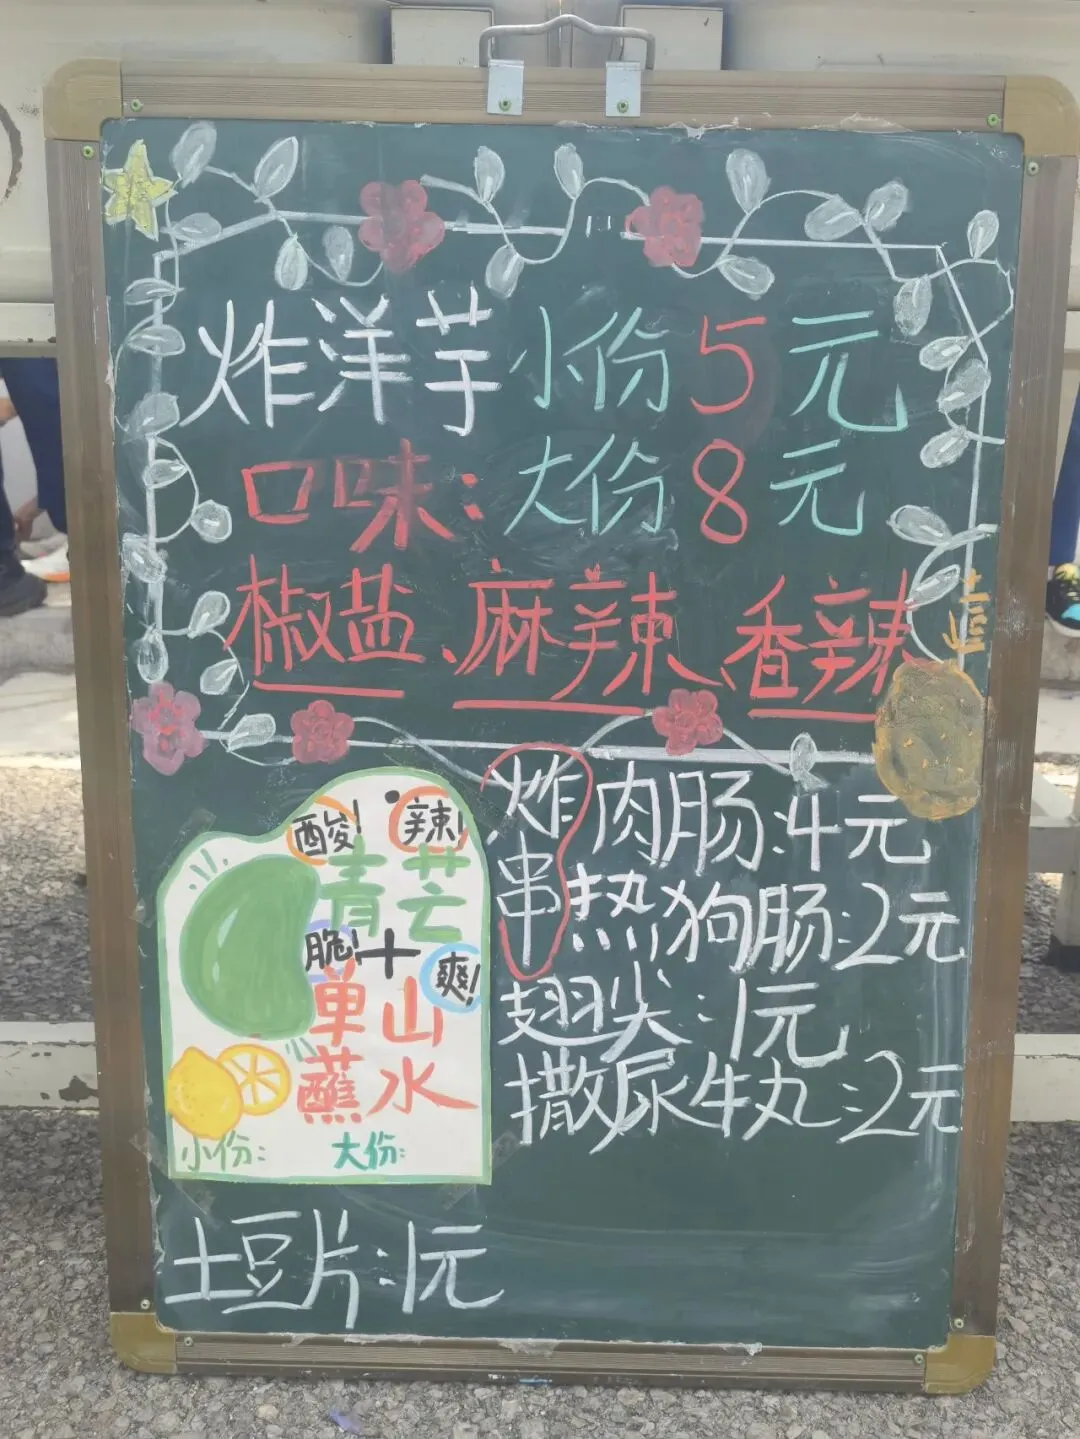 炸洋芋 小份 5 元
口味: 大份 8 元
椒盐、麻辣、香辣
炸串
肉肠:4元
热狗肠:2元
翅尖:1元
撒尿牛丸:2元
酸! 辣!
青芒
脆! + 爽!
单山
蘸水
小份: 大份:
土豆片:1元